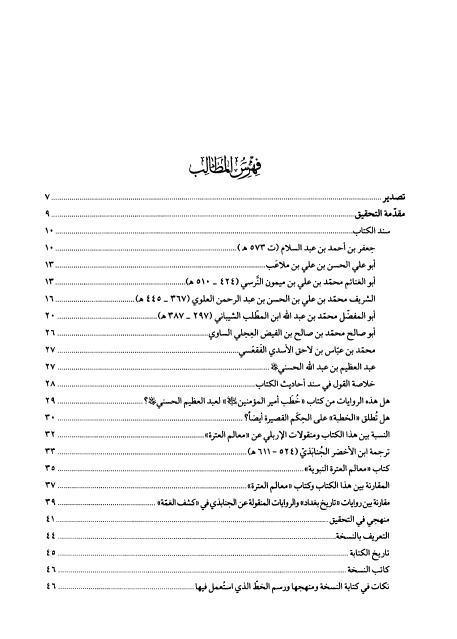 فهرس المطالب
تصدير ... ٧
مقدّمة التحقيق ... ٩
سند الكتاب ... ١٠
جعفر بن أحمد بن عبد السلام (ت ٥٧٣ هـ) ... ١٠
أبو علي الحسن بن علي بن ملاعَب ... ١٣
أبو الغنائم محمّد بن علي بن ميمون النَّرسي (٤٢٤ ـ ٥١٠ هـ) ... ١٣
الشريف محمّد بن علي بن الحسن بن عبد الرحمن العلوي (٣٦٧ ـ ٤٤٥ هـ) ... ١٦
أبو المفضّل محمّد بن عبد الله ابن المطّلب الشيباني (٢٩٧ ـ ٣٨٧ هـ) ... ٢٠
أبو صالح محمّد بن صالح بن الفيض العِجلي الساوي ... ٢٦
محمّد بن عبّاس بن لاحق الأسدي الفَقعَسي ... ٢٧
عبد العظيم بن عبد الله الحسني ... ٢٧
خلاصة القول في سند أحاديث الكتاب ... ٢٨
هل هذه الروايات من كتاب «خُطَب أمير المؤمنين» لعبد العظيم الحسني؟ ... ٢٩
هل تُطلق «الخطبة» على الحِكَم القصيرة أيضاً؟ ... ٣٠
النسبة بين هذا الكتاب ومنقولات الإربلي عن «معالم العترة» ... ٣٢
ترجمة ابن الأخضر الجُنابَذيّ (٥٢٤ - ٦١١ هـ) ... ٣٣
كتاب «معالم العترة النبوية» ... ٣٥
المقارنة بين هذا الكتاب وكتاب «معالم العترة» ... ٣٧
مقارنة بين روايات «تاريخ بغداد» والروايات المنقولة عن الجنابذي في «كشف الغمّة» ... ٣٩
منهجي في التحقيق ... ٤١
التعريف بالنسخة ... ٤٤
تاريخ الكتابة ... ٤٥
كاتب النسخة ... ٤٦
نكات في كتابة النسخة ومنهجها ورسم الخطّ الذي استُعمل فيها ... ٤٦